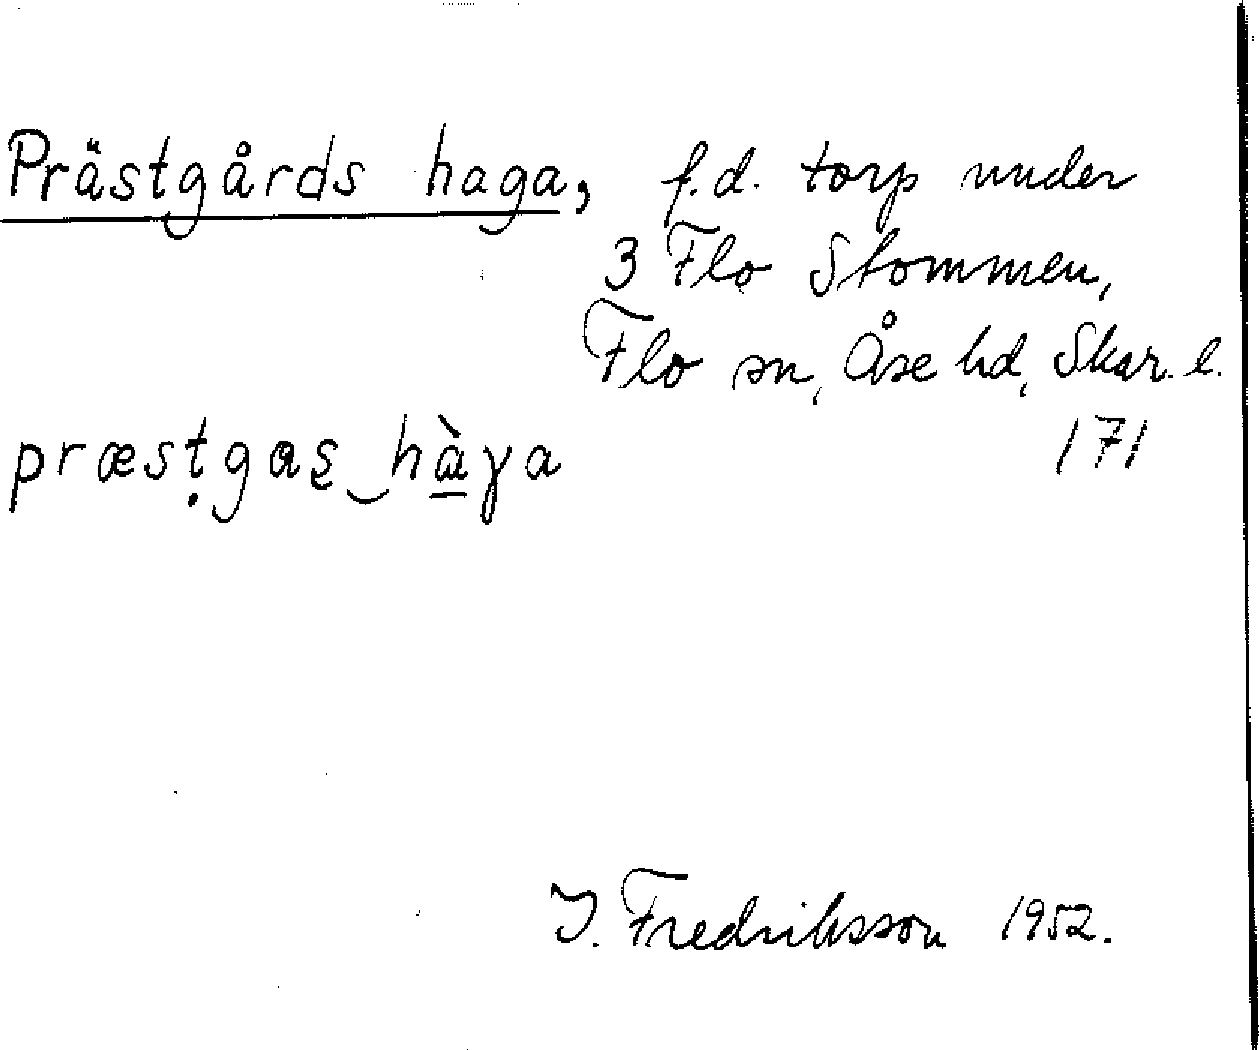 Prästgårds haga, f.d. torp under
3 Flo Stommen,
Flo sn, Åse hd, Skar. l.
171
præsṭgɑs̨‿hɑ̱̀ɣa
I. Fredriksson 1952.